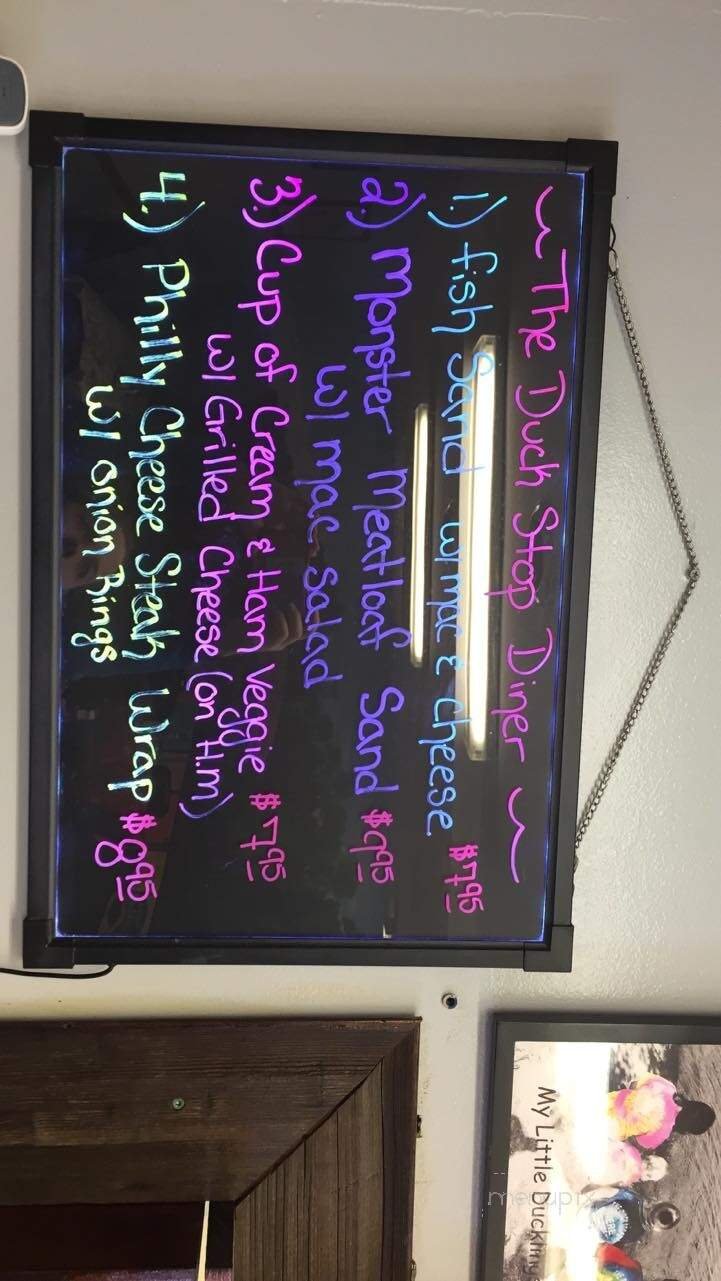 ~ The Duck Stop Diner ~
1.) fish Sand w/ mac & cheese $7.95
2.) Monster Meatloaf Sand $9.95
w/ mac salad
3.) Cup of Cream & Ham Veggie $7.95
w/ Grilled Cheese (or H.m)
4.) Philly Cheese Steak Wrap $8.95
w/ onion Rings
My Little Duckling
menupix